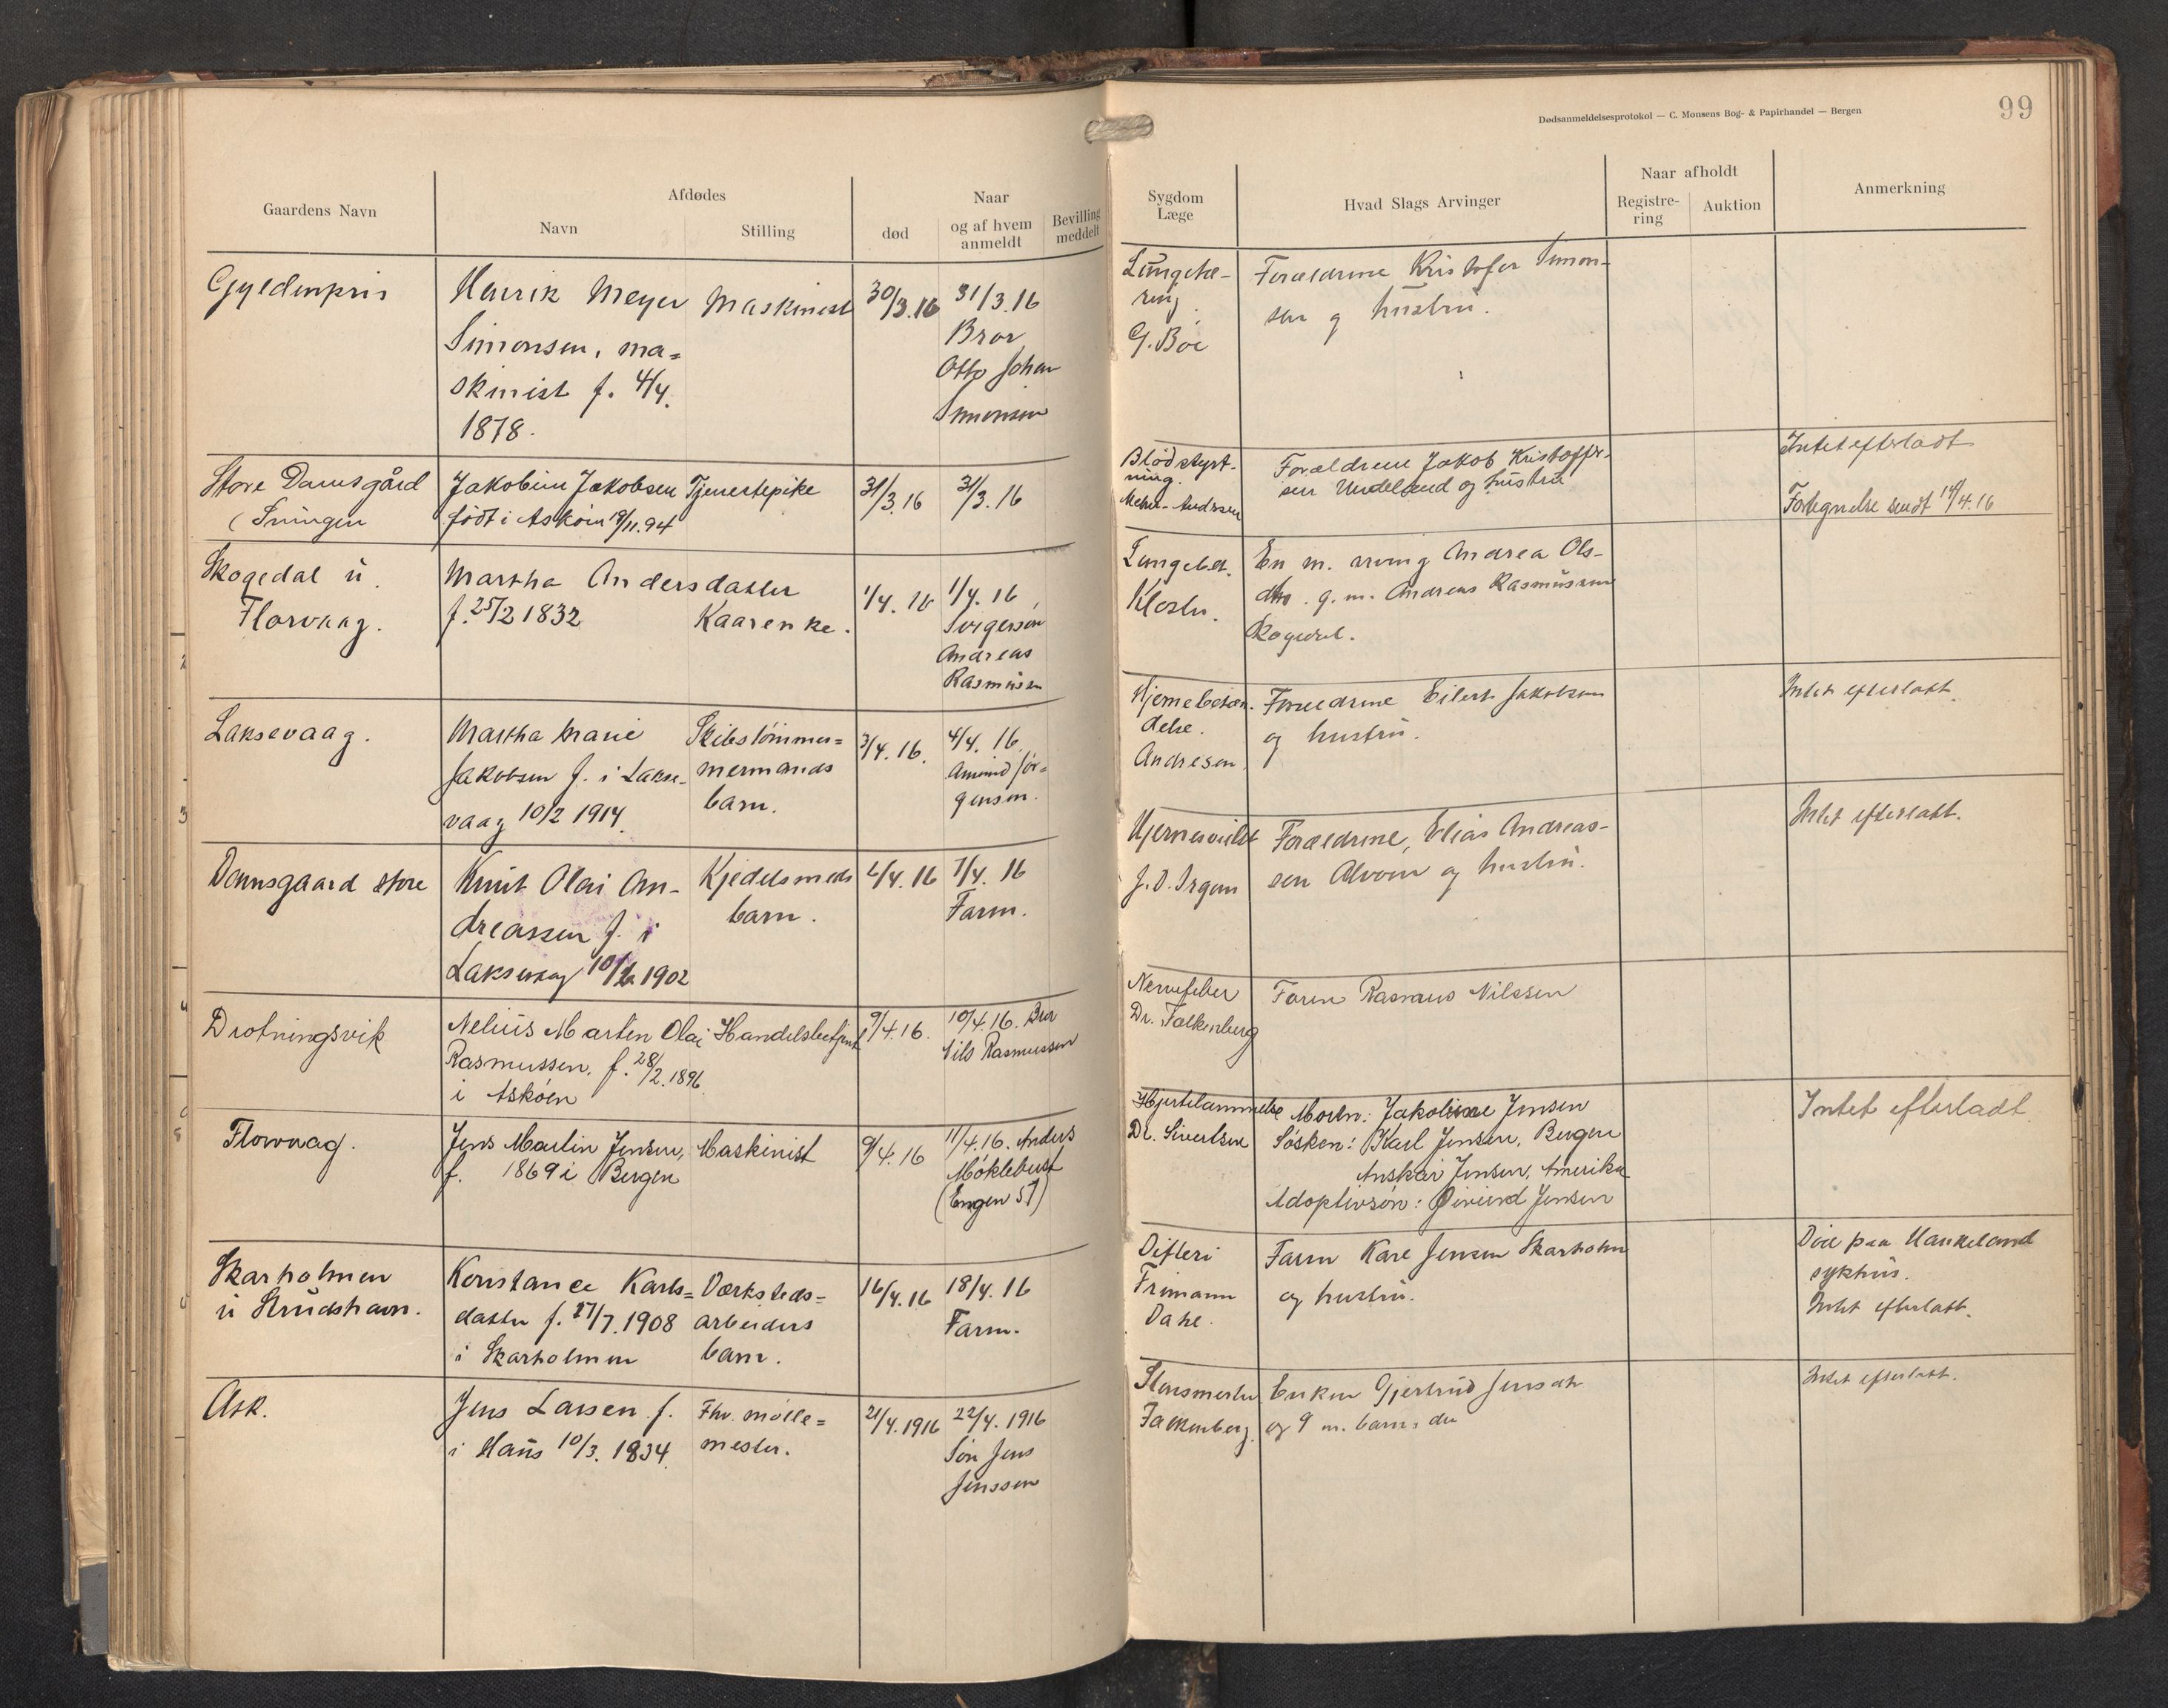 Dødsanmeldelsesprotokol — C. Monsens Bog- & Papirhandel — Bergen
99
Gaardens Navn
Afdødes
Navn
Stilling
død
Naar
og af hvem
anmeldt
Bevilling
meddelt
Sygdom
Læge
Hvad Slags Arvinger
Naar afholdt
Registre-
ring
Auktion
Anmerkning
Gyldenpris
Henrik Meyer
Simonsen, ma=
skinist f. 4/4.
1878.
Maskinist
30/3.16
31/3.16
Bror
Otto Johan
Simonsen
Lungetæ-
ring
G. Böe
Forældrene Kristofer Simon-
sen og hustru.
Store Damsgård
Jakobine Jakobsen
född i Asköen 19/11.94
Tjenestepike
31/3.16
31/3.16
Blodstyrt-
ning.
Forældrene Jakob Kristoffer-
sen Undeland og hustru
Intet efterladt
Fortegnelse sendt 14/4.16
Skogedal u.
Florvaag.
Martha Andersdatter
f. 25/2 1832
Kaarenke.
1/4. 16
1/4. 16
Svigersön
Andreas
Rasmussen
Lungebet.
Kloster.
En m. arving Andrea Ols-
dtr. g.m. Andreas Rasmussen
Skogedal.
Laksevaag.
Martha Marie
Jakobsen f. i Lakse-
vaag 10/2 1914.
Skibstömmer=
mermands
barn.
3/4.16.
4/4. 16.
Amund Jör=
gensen.
Hjernebetæn-
delse.
Andresen
Forældrene Eilert Jakobsen
og hustru.
Intet efterlatt.
Damsgaard store
Knut Olai An-
dreassen f. i
Laksevaag 10/6 1902
Kjedelsmeds
barn.
6/4. 16
7/4. 16
Faren.
Hjernesvulst
Forældrene, Elias Andreas-
sen Alvöen og hustru.
Intet efterlatt.
Drotningsvik
Nelius Martin Olai
Rasmussen. f. 28/2.1896
i Asköen
Handelsbetjent
9/4.16.
10/4.16. Bror
Nils Rasmussen
Nervefeber
Dr. Falkenberg
Faren Rasmus Nilssen
Florvaag.
Jens Martin Jensen,
f. 1869 i Bergen
Maskinist
9/4.16
11/4.16. Anders
Möklebust
(Engen 57)
Hjertelammelse
Dr. Sivertsen
Moren: Jakobine Jensen
Søsken: Karl Jensen, Bergen
Anskar Jensen, Amerika
Adoptivsön: Øivind Jensen
Intet efterladt
Skarholmen
u Strudshavn.
Konstance Karls=
datter f. 27/7.1908
i Skarholmen
Værksteds=
arbeiders
barn.
16/4.16
18/4. 16
Faren.
Difteri
Frimann
Dahl.
Faren Karl Jensen Skarholm
og hustru.
Död paa Haukeland
sykhus.
Intet efterlatt.
Ask.
Jens Larsen f.
i Haus 10/3. 1834.
Fhv. mölle=
mester.
21/4.1916
22/4. 1916
Sön Jens
Jenssen
Falkenberg.
Enken Gjertrud Jensdtr
og 9 m. barn:
Intet efterlatt.